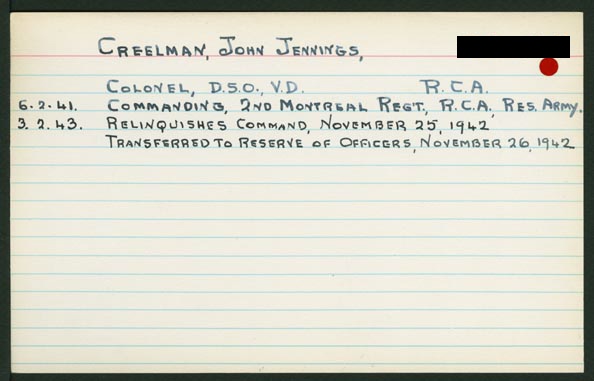 CREELMAN, JOHN JENNINGS,
COLONEL, D.S.O., V.D. R.C.A.
6.2.41. COMMANDING, 2ND MONTREAL REGT, R.C.A, RES. ARMY.
3.2.43. RELINQUISHES COMMAND, NOVEMBER 25, 1942
TRANSFERRED TO RESERVE OF OFFICERS, NOVEMBER 26, 1942